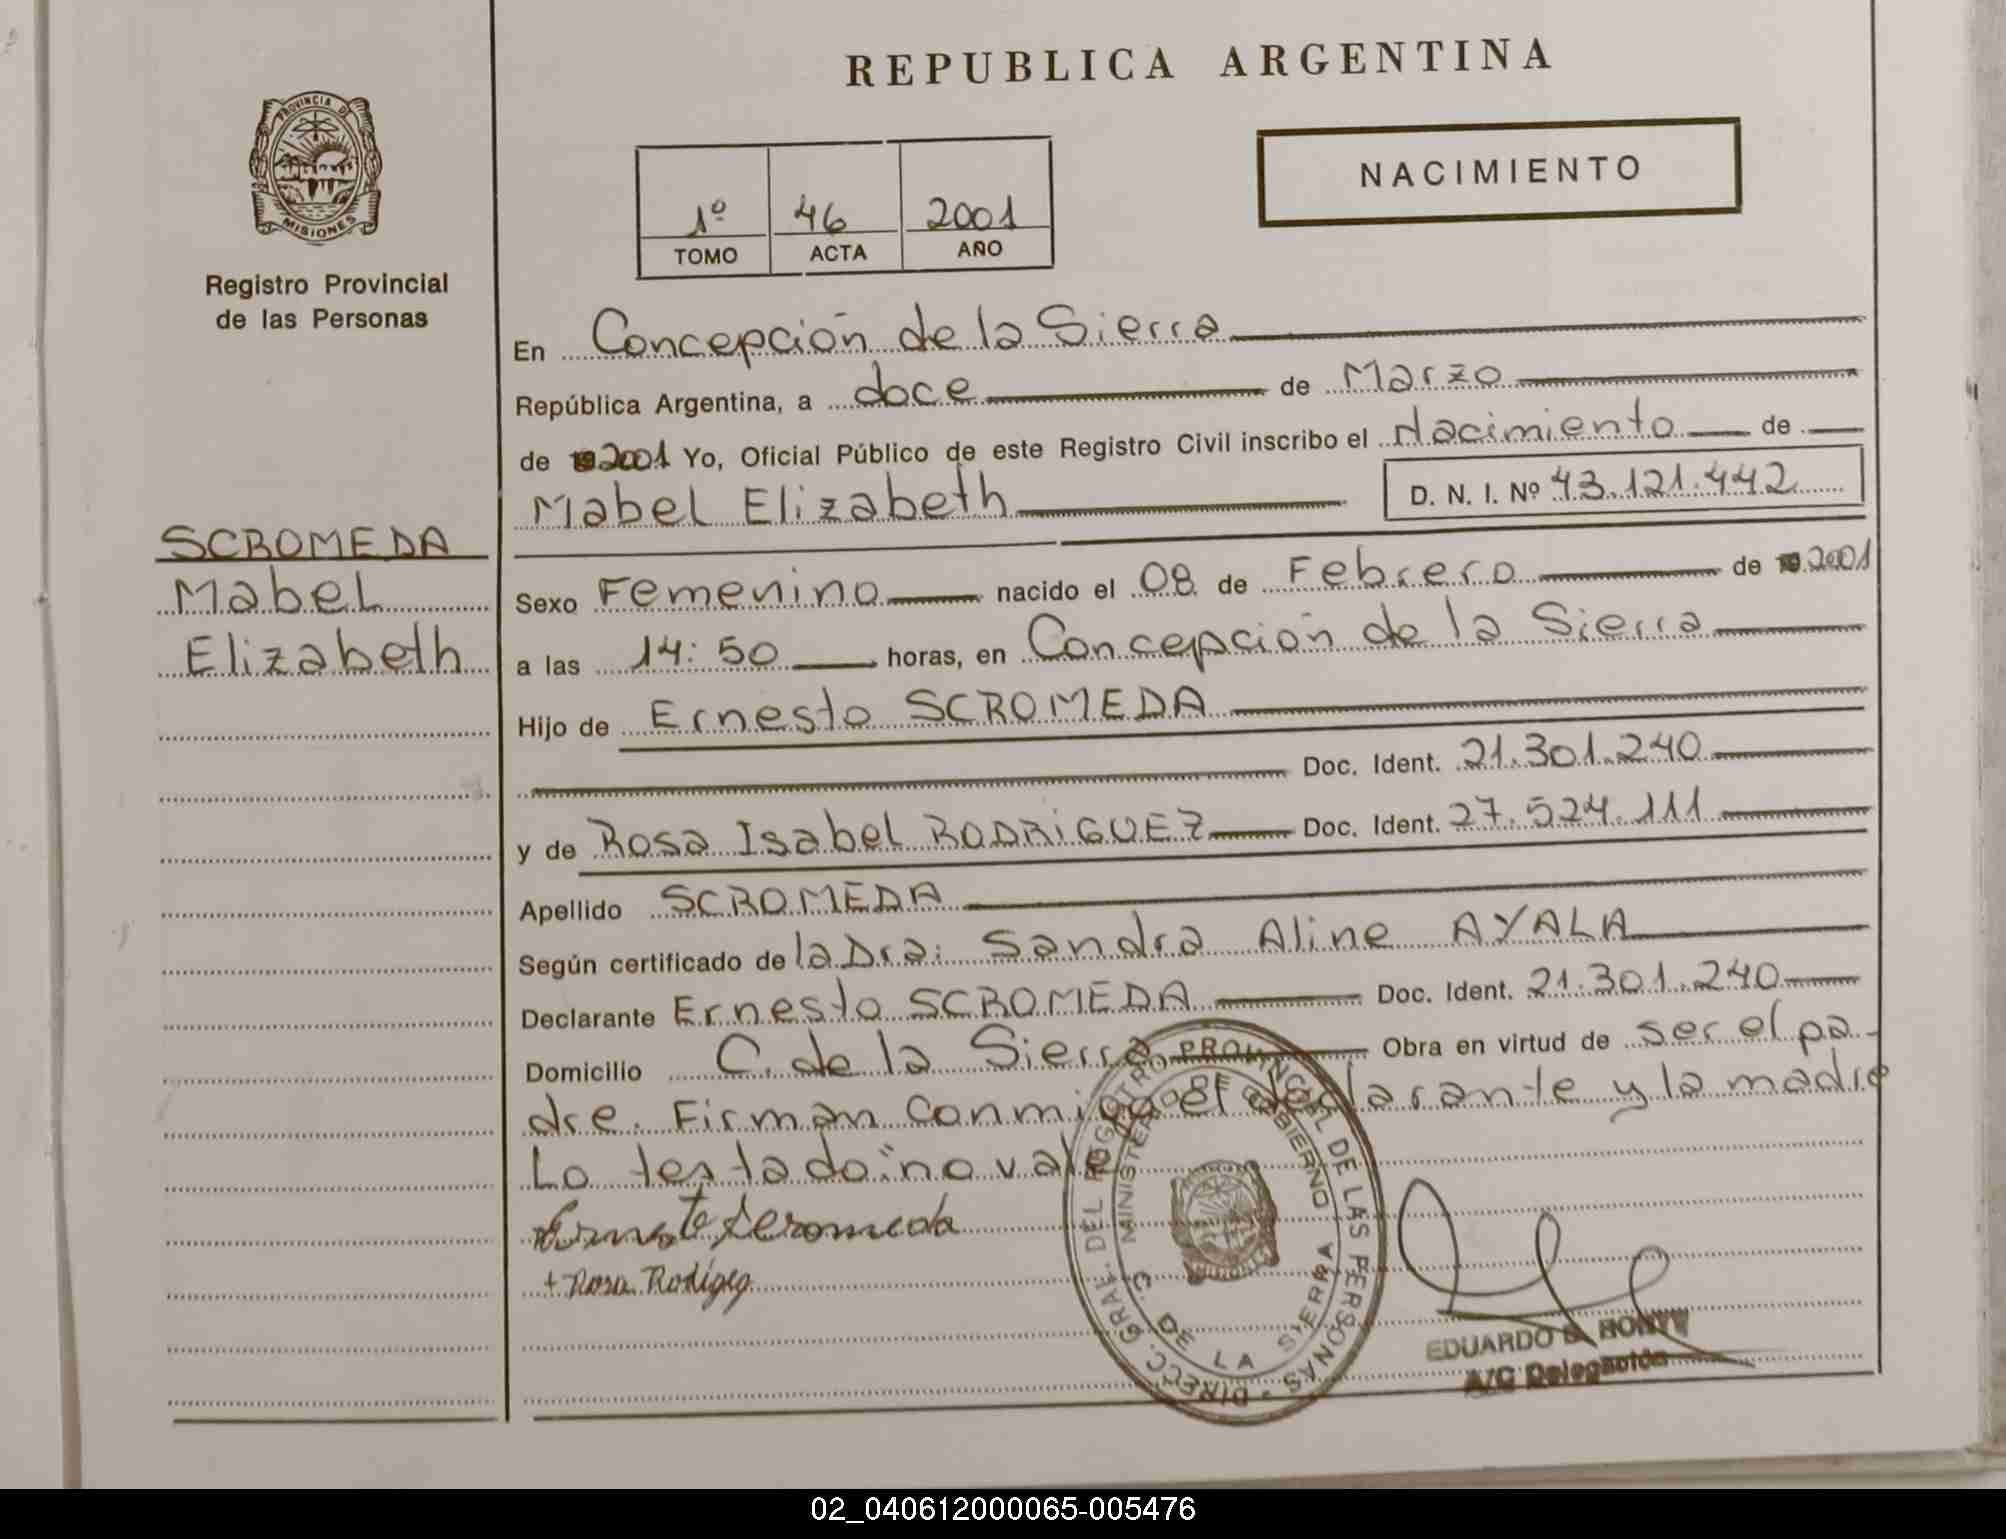 REPUBLICA ARGENTINA
PROVINCIA DE
MISIONES
Registro Provincial
de las Personas
NACIMIENTO
1º 46 2001
TOMO ACTA AÑO
En Concepción de la Sierra
República Argentina, a doce de Marzo
de 2001 Yo, Oficial Público de este Registro Civil inscribo el Nacimiento de
Mabel Elizabeth D. N. I. Nº 43.121.442
SCROMEDA
Mabel
Elizabeth
Sexo Femenino nacido el 08 de Febrero de 2001
a las 14:50 horas, en Concepción de la Sierra
Hijo de Ernesto SCROMEDA
Doc. Ident. 21.301.240
y de Rosa Isabel RODRIGUEZ Doc. Ident. 27.524.111
Apellido SCROMEDA
Según certificado de la Dra: Sandra Aline AYALA
Declarante Ernesto SCROMEDA Doc. Ident. 21.301.240
Domicilio C. de la Sierra Obra en virtud de ser el pa-
dre. Firman conmigo el declarante y la madre
Lo testado: no vale
Ernesto Scromeda
+ Rosa Rodigeg
DIRECC. GRAL. DEL REGISTRO PROVINCIAL DE LAS PERSONAS
MINISTERIO DE GOBIERNO
C. DE LA SIERRA
EDUARDO
A/C Delegación
02_040612000065-005476